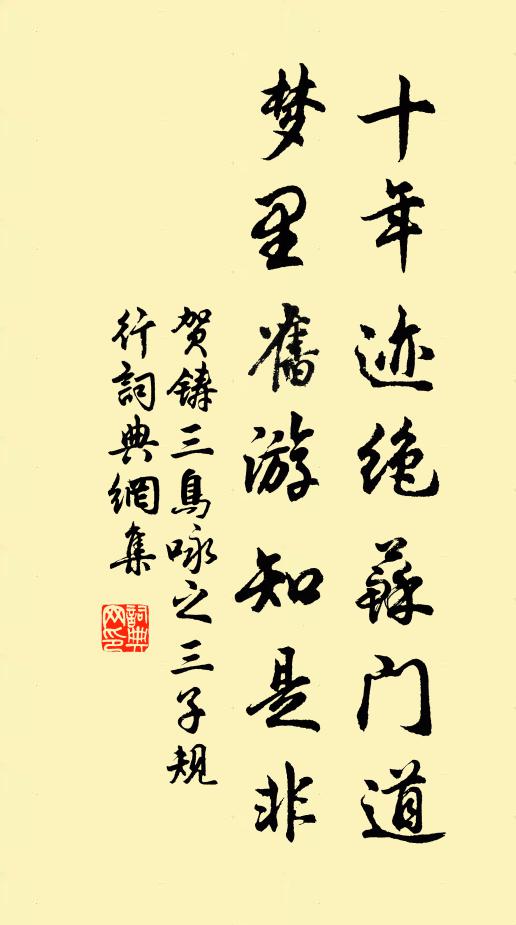 十年迹绝蘇门道
梦里舊游知是非
贺铸三鳥咏之三子规
行詞典網集
詞典网印